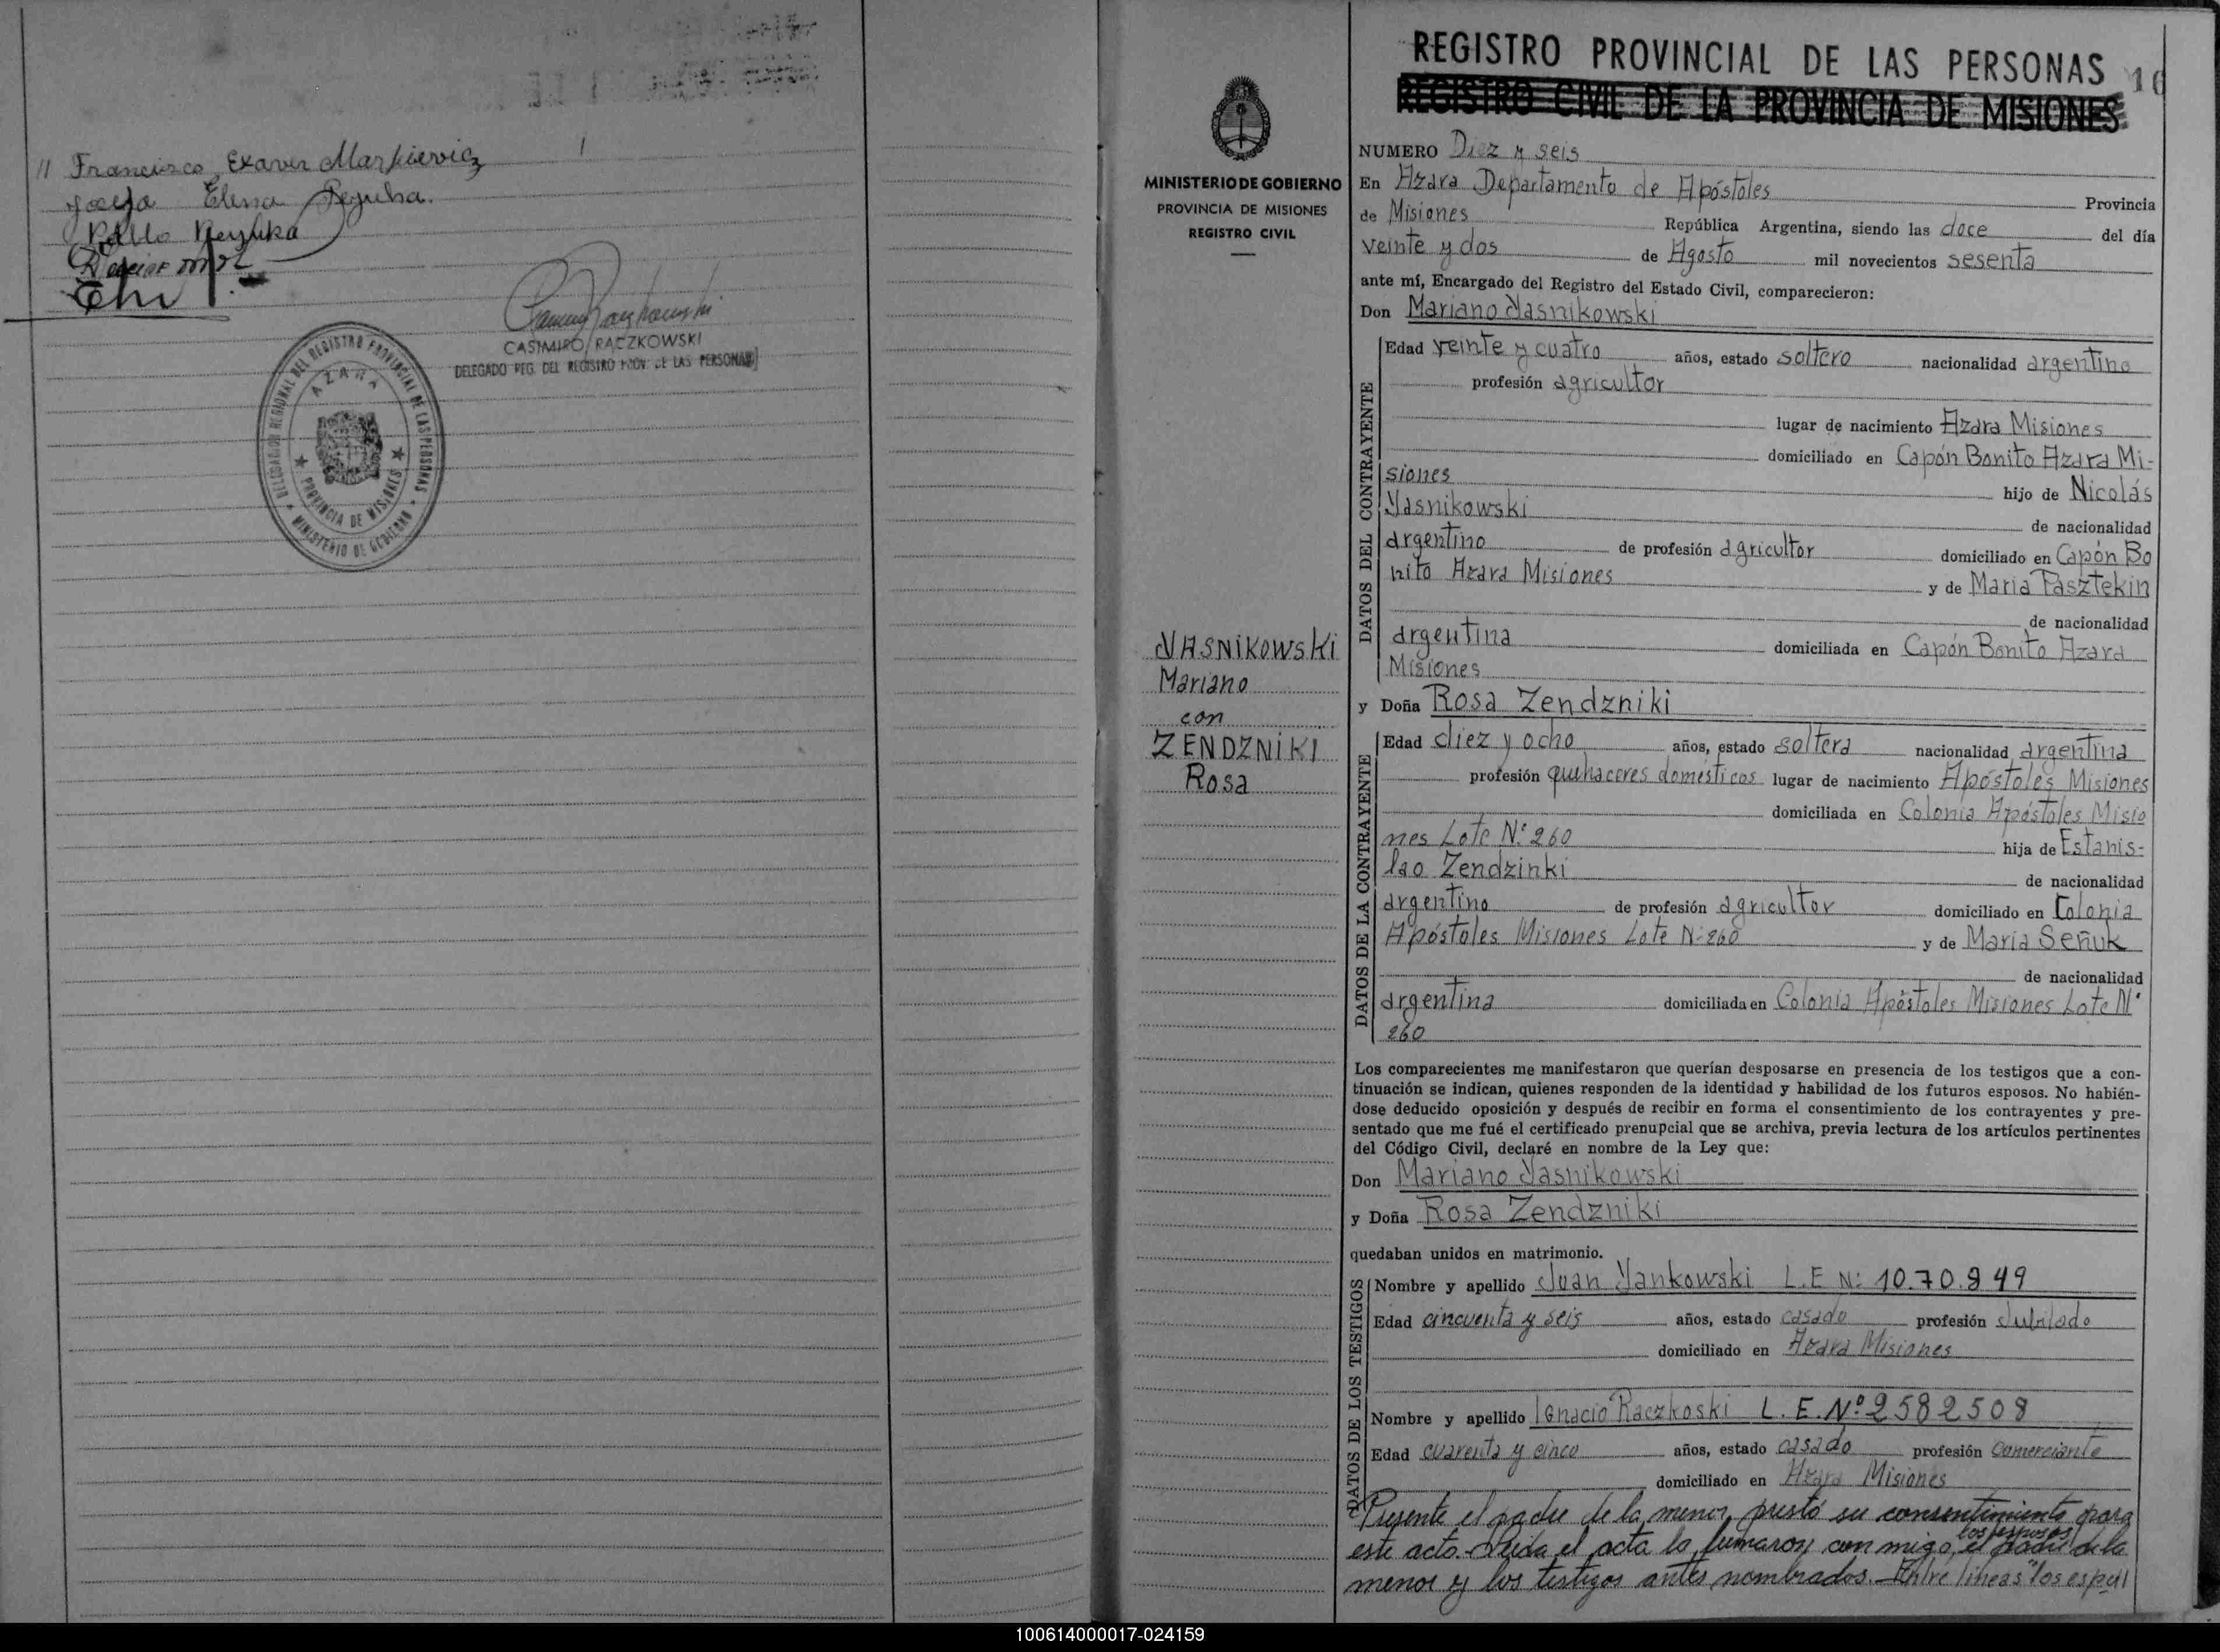 // Francisco Exaver Markievicz
Josefa Elena Reguha.
Pablo
CASIMIRO RACZKOWSKI
DELEGADO REG. DEL REGISTRO PROV. DE LAS PERSONAS
DELEGACION REGIONAL DEL REGISTRO PROVINCIAL DE LAS PERSONAS
AZARA
PROVINCIA DE MISIONES
MINISTERIO DE GOBIERNO
MINISTERIO DE GOBIERNO
PROVINCIA DE MISIONES
REGISTRO CIVIL
YASNIKOWSKI
Mariano
con
ZENDZNIKI
Rosa
REGISTRO PROVINCIAL DE LAS PERSONAS 16
REGISTRO CIVIL DE LA PROVINCIA DE MISIONES
NUMERO Diez y seis
En Azara Departamento de Apóstoles Provincia
de Misiones República Argentina, siendo las doce del día
veinte y dos de Agosto mil novecientos sesenta
ante mí, Encargado del Registro del Estado Civil, comparecieron:
Don Mariano Yasnikowski
DATOS DEL CONTRAYENTE
Edad veinte y cuatro años, estado soltero nacionalidad argentino
profesión agricultor
lugar de nacimiento Azara Misiones
domiciliado en Capón Bonito Azara Mi-
siones hijo de Nicolás
Yasnikowski de nacionalidad
argentino de profesión agricultor domiciliado en Capón Bo
nito Azara Misiones y de Maria Pasztekin
de nacionalidad
argentina domiciliada en Capón Bonito Azara
Misiones
y Doña Rosa Zendzniki
DATOS DE LA CONTRAYENTE
Edad diez y ocho años, estado soltera nacionalidad argentina
profesión quehaceres domésticos lugar de nacimiento Apóstoles Misiones
domiciliada en Colonia Apóstoles Misio
nes Lote N° 260 hija de Estanis-
lao Zendzinki de nacionalidad
argentino de profesión agricultor domiciliado en Colonia
Apóstoles Misiones Lote N° 260 y de Maria Señuk
de nacionalidad
argentina domiciliada en Colonia Apóstoles Misiones Lote N°
260
Los comparecientes me manifestaron que querían desposarse en presencia de los testigos que a con-
tinuación se indican, quienes responden de la identidad y habilidad de los futuros esposos. No habién-
dose deducido oposición y después de recibir en forma el consentimiento de los contrayentes y pre-
sentado que me fué el certificado prenupcial que se archiva, previa lectura de los artículos pertinentes
del Código Civil, declaré en nombre de la Ley que:
Don Mariano Yasnikowski
y Doña Rosa Zendzniki
quedaban unidos en matrimonio.
DATOS DE LOS TESTIGOS
Nombre y apellido Juan Yankowski L.E N: 10.70.949
Edad cincuenta y seis años, estado casado profesión Jubilado
domiciliado en Azara Misiones
Nombre y apellido Ignacio Raczkoski L.E.Nº 2582508
Edad cuarenta y cinco años, estado casado profesión Comerciante
domiciliado en Azara Misiones
Presente el padre de la menor, prestó su consentimiento para
los esposos
este acto. Leída el acta la firmaron con migo, el padre de la
menor y los testigos antes nombrados. Entre líneas "los espo//
100614000017-024159